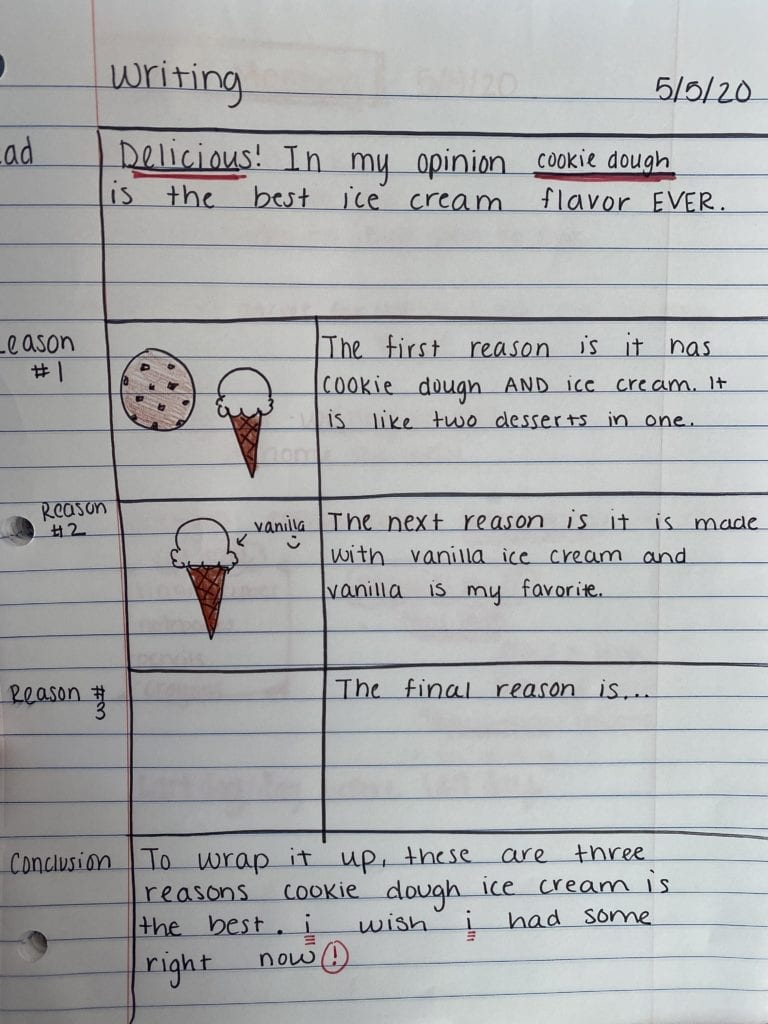 Writing 5/5/20
ad
Delicious! In my opinion cookie dough
is the best ice cream flavor EVER.
eason
#1
The first reason is it has
cookie dough AND ice cream. It
is like two desserts in one.
Reason
#2
vanilla
The next reason is it is made
with vanilla ice cream and
vanilla is my favorite.
Reason #
3
The final reason is...
Conclusion
To wrap it up, these are three
reasons cookie dough ice cream is
the best. i wish i had some
right now!